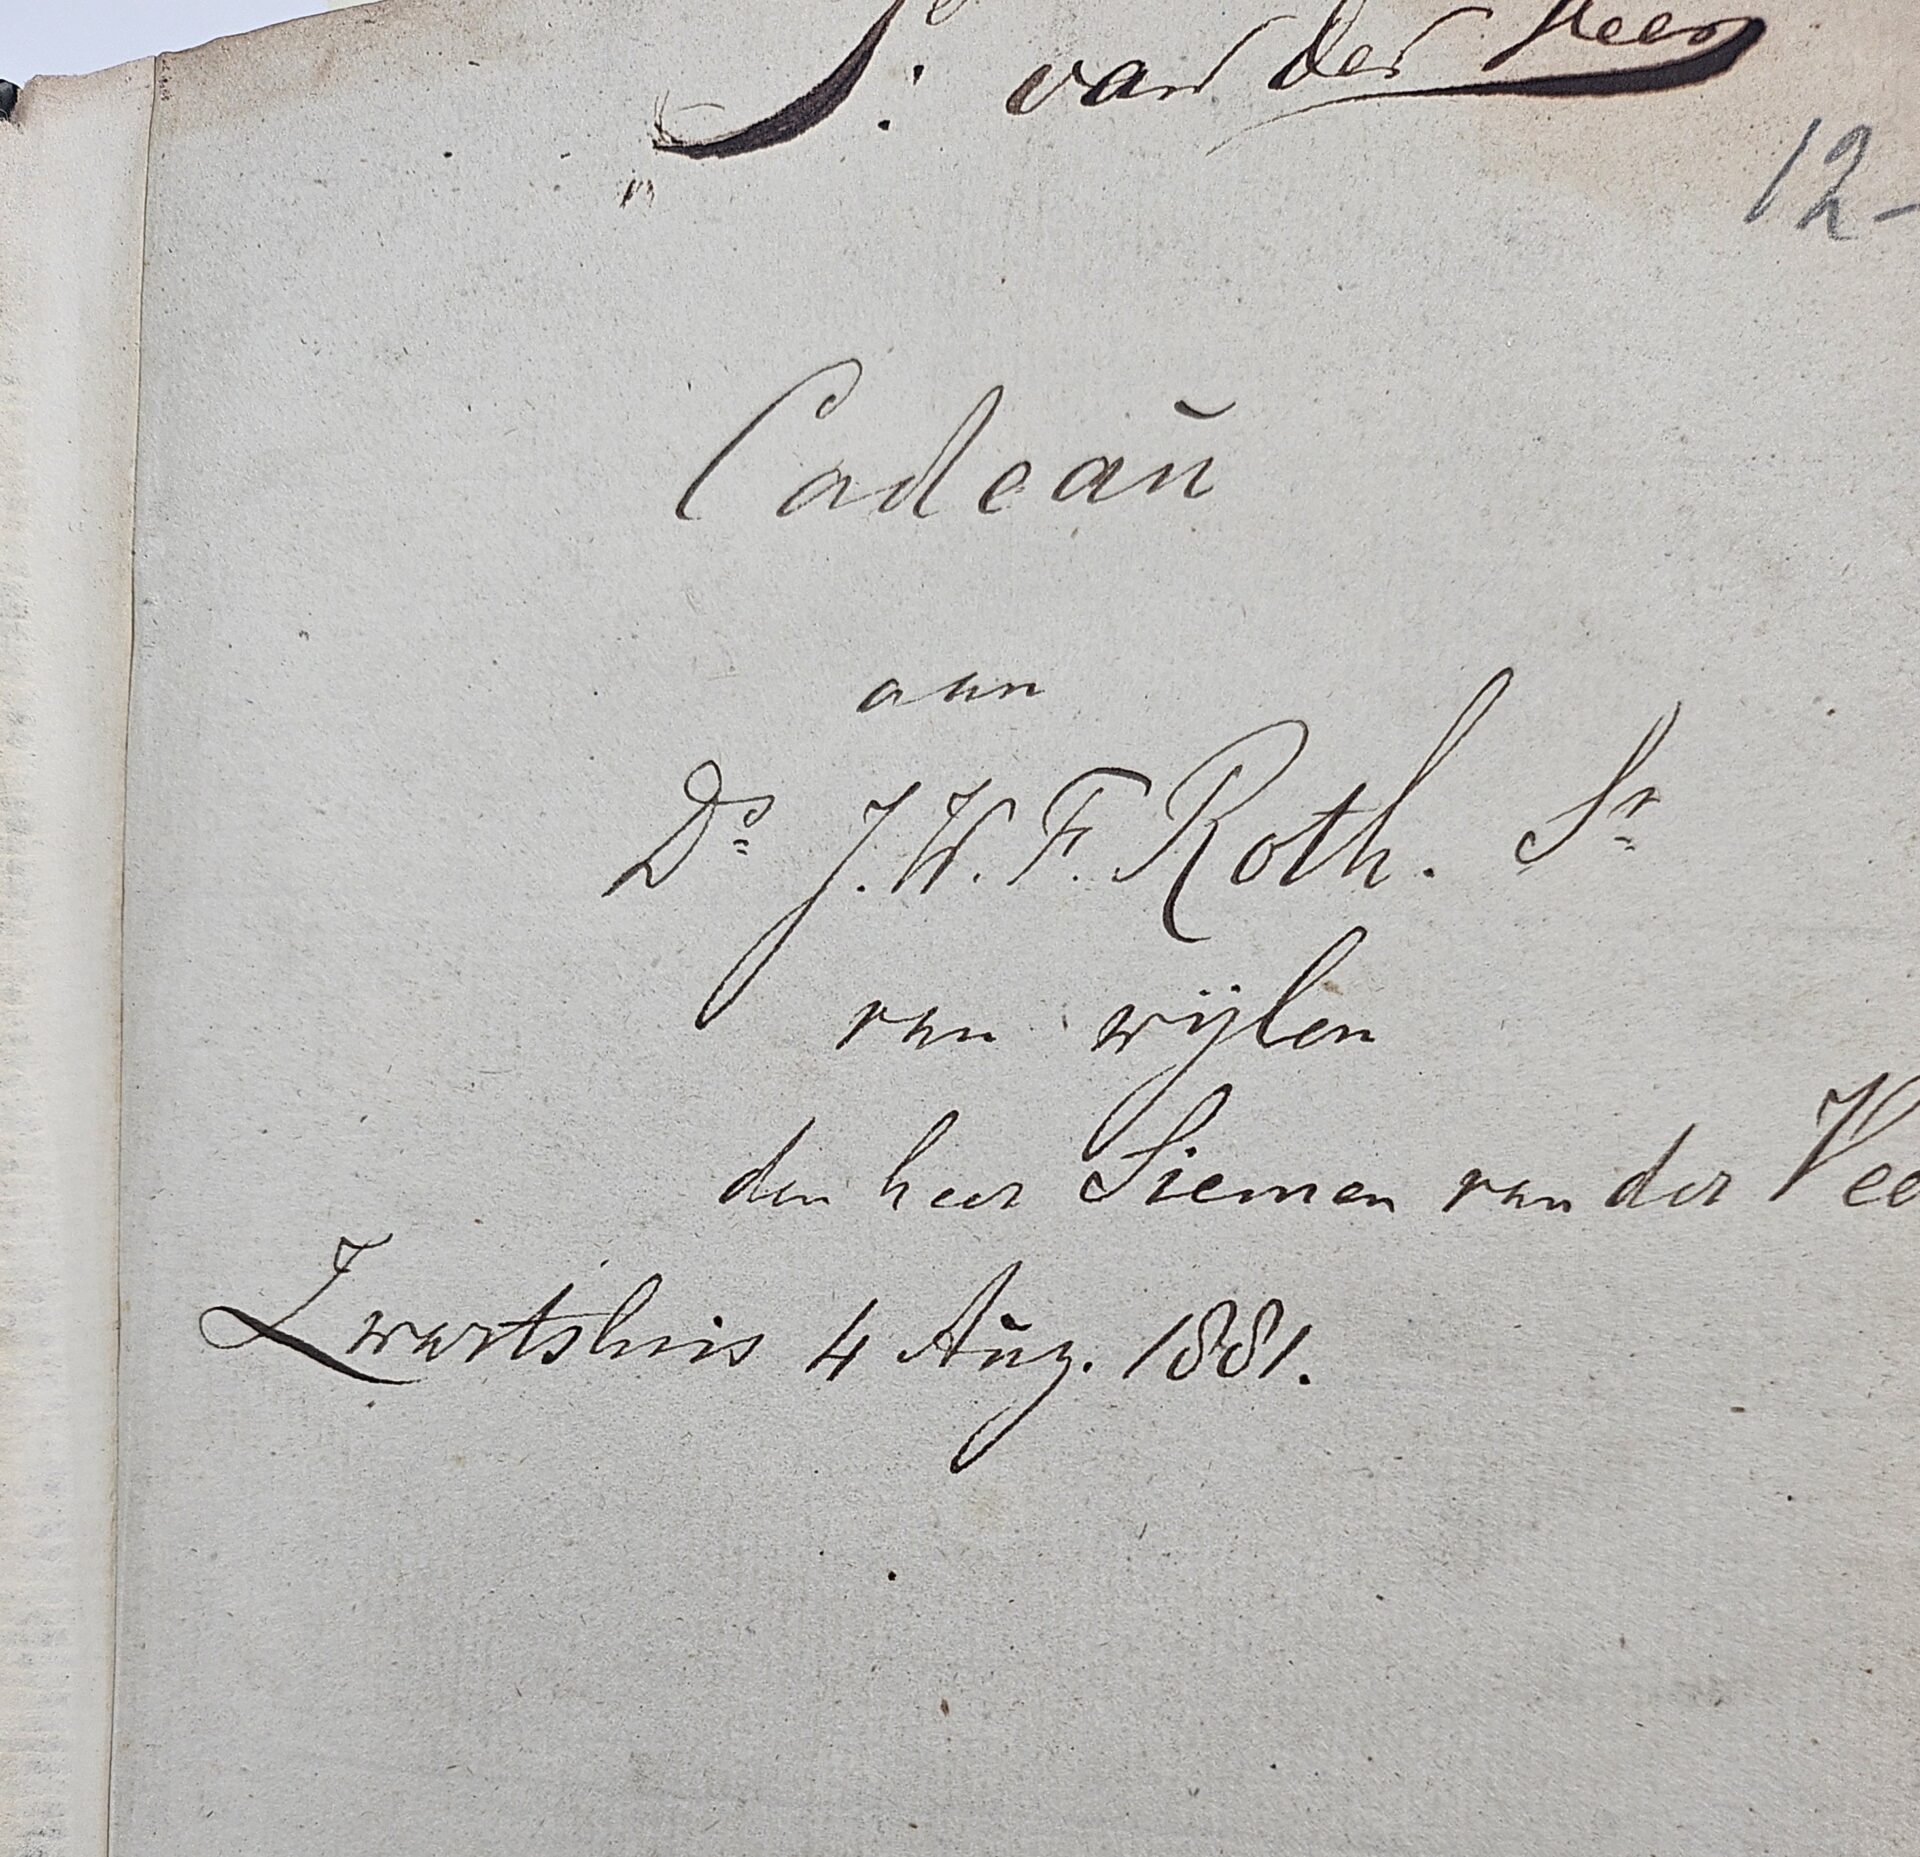 S. van der Veer
12-
Cadeau
aan
Ds J. W. F. Roth. Sr
van wijlen
den heer Siemen van der Vee
Zwartsluis 4 Aug. 1881.